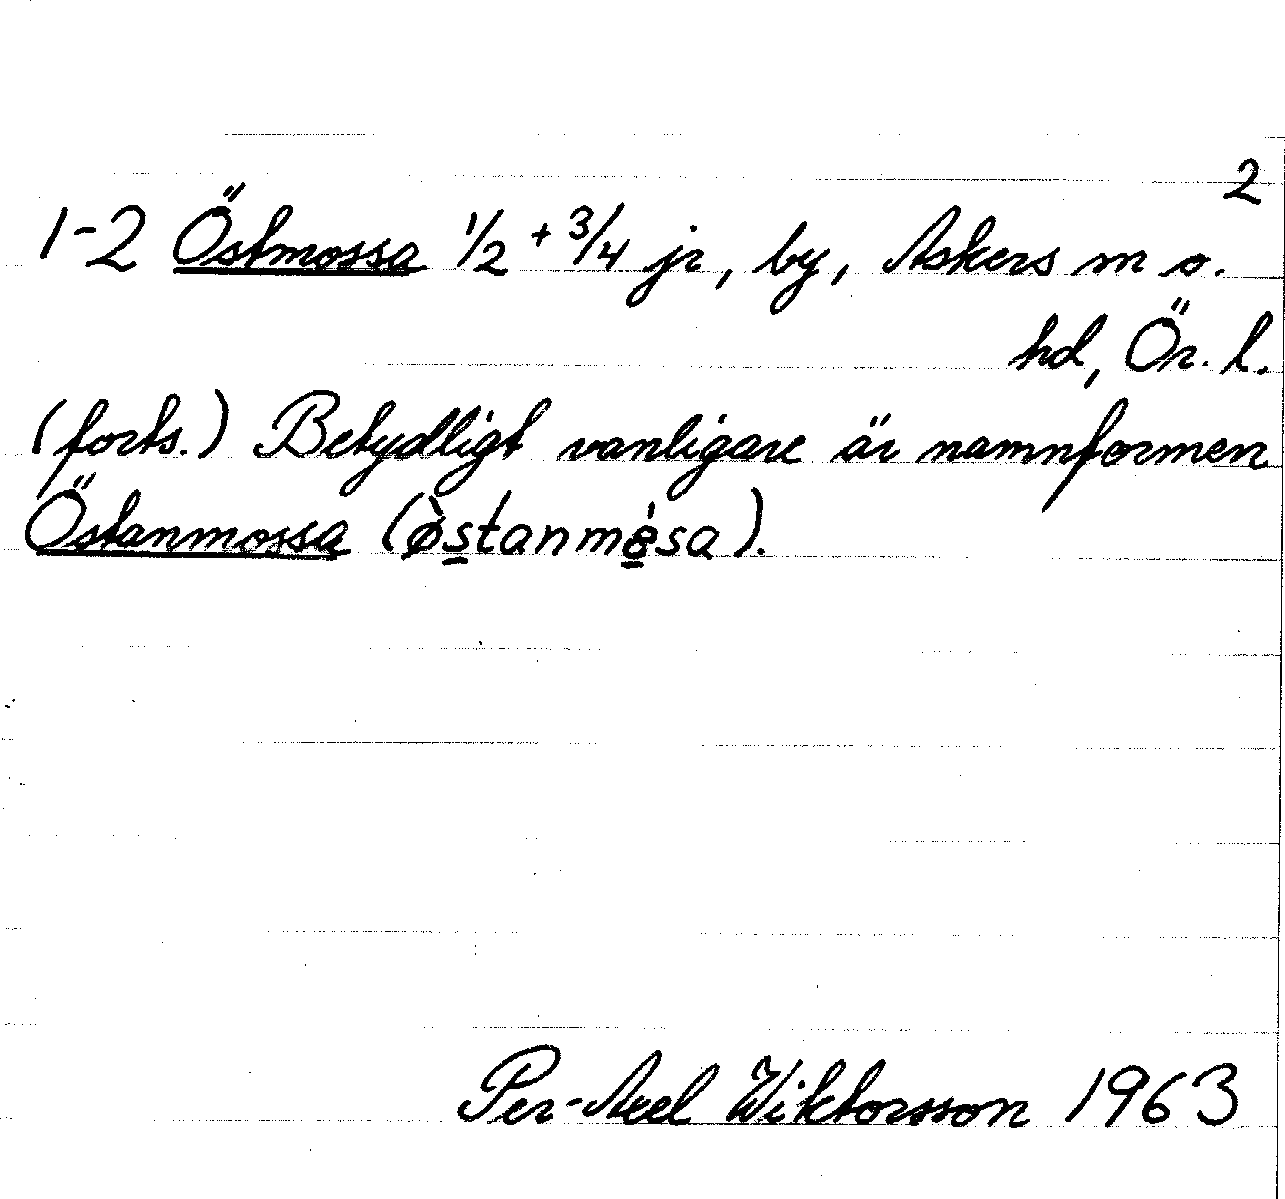 2
1-2 Östmossa 1/2 + 3/4 jr, by, Askers m o.
hd, Ör. l.
(forts.) Betydligt vanligare är namnformen
Östanmossa
Per-Axel Wiktorsson 1963